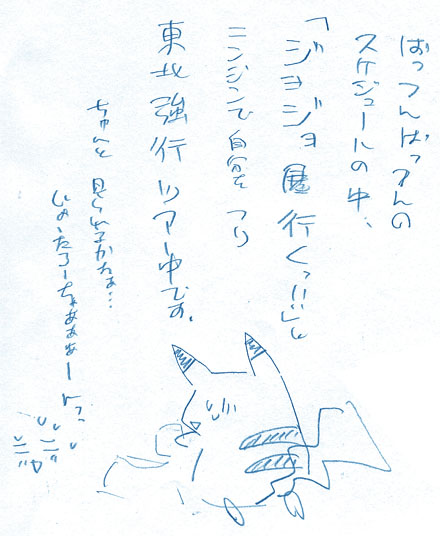 ぱっつんぱっつんの
スケジュールの中、
「ジョジョ展行くっ!!」と
ニンジンで自分を つり
東北強行ツアー中です。
ちゃんと 見られるかなぁ…
じょーたろーちゃぁぁぁーん